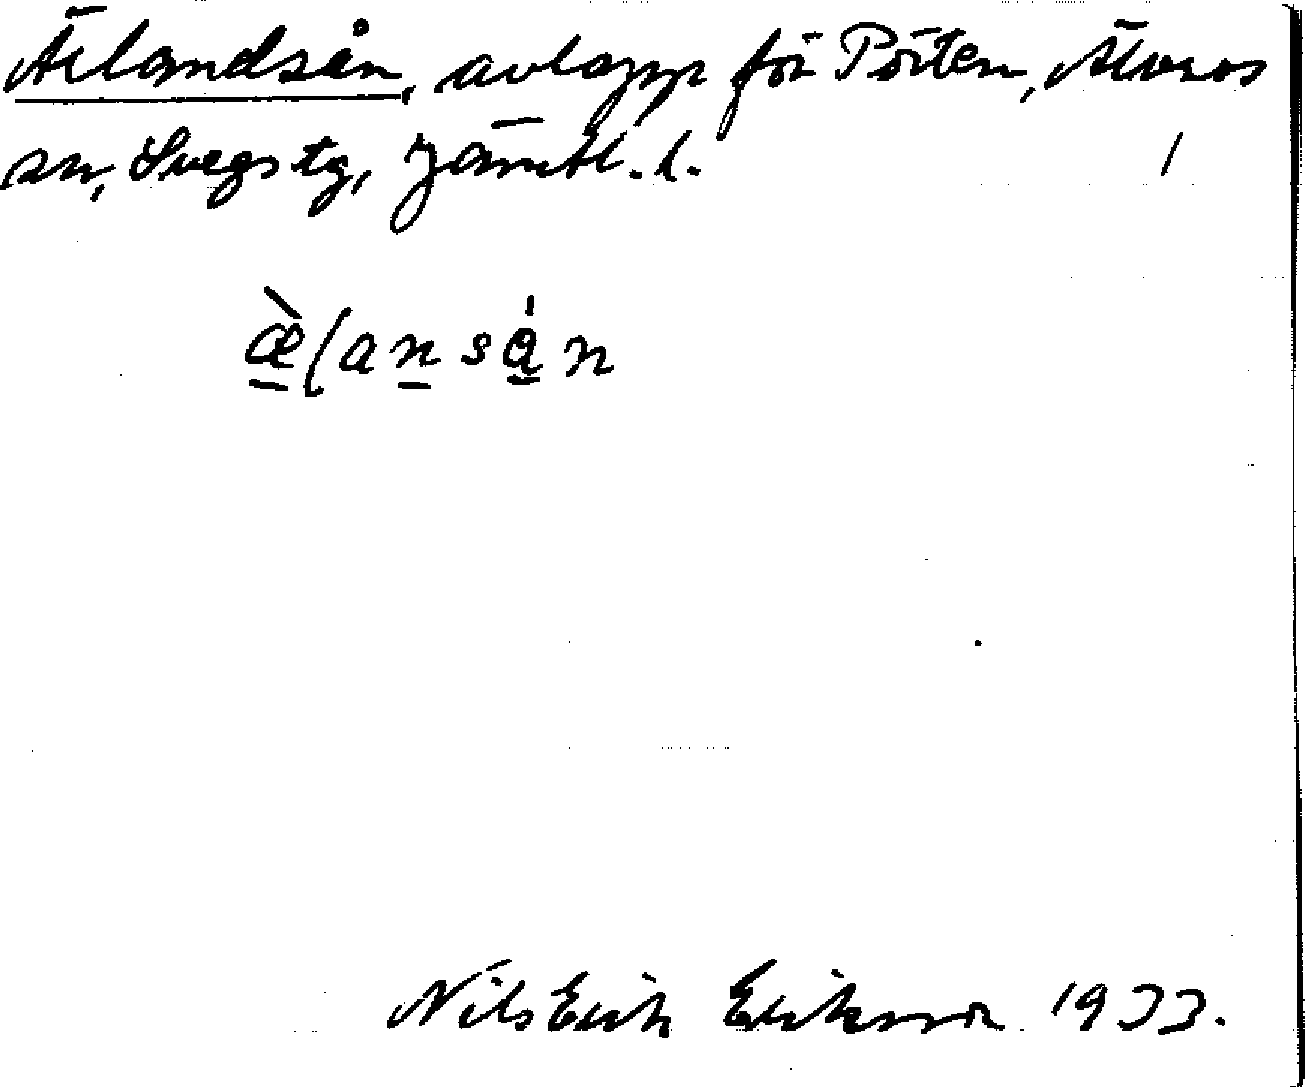 Älandsån, avlopp för Pörten, Älvros
sn, Svegs tg, Jämtl. l. 1
æ̀lansån
Nils Erik Eriksson 1933.